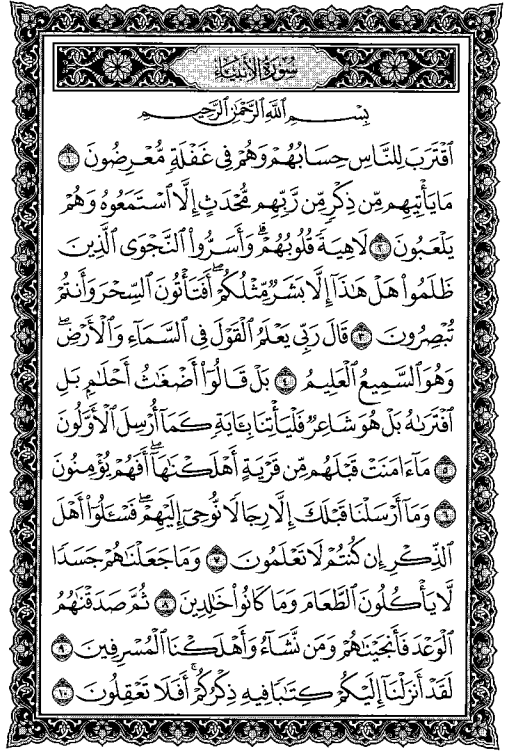 سُورَةُ الأَنبِيَاء
بِسْمِ اللَّهِ الرَّحْمَٰنِ الرَّحِيمِ
ٱقْتَرَبَ لِلنَّاسِ حِسَابُهُمْ وَهُمْ فِى غَفْلَةٍ مُّعْرِضُونَ ١
مَا يَأْتِيهِم مِّن ذِكْرٍ مِّن رَّبِّهِم مُّحْدَثٍ إِلَّا ٱسْتَمَعُوهُ وَهُمْ
يَلْعَبُونَ ٢ لَاهِيَةً قُلُوبُهُمْ ۗ وَأَسَرُّوا۟ ٱلنَّجْوَى ٱلَّذِينَ
ظَلَمُوا۟ هَلْ هَٰذَآ إِلَّا بَشَرٌ مِّثْلُكُمْ ۖ أَفَتَأْتُونَ ٱلسِّحْرَ وَأَنتُمْ
تُبْصِرُونَ ٣ قَالَ رَبِّى يَعْلَمُ ٱلْقَوْلَ فِى ٱلسَّمَآءِ وَٱلْأَرْضِ ۖ
وَهُوَ ٱلسَّمِيعُ ٱلْعَلِيمُ ٤ بَلْ قَالُوٓا۟ أَضْغَٰثُ أَحْلَٰمٍ بَلِ
ٱفْتَرَىٰهُ بَلْ هُوَ شَاعِرٌ فَلْيَأْتِنَا بِـَٔايَةٍ كَمَآ أُرْسِلَ ٱلْأَوَّلُونَ
٥ مَآ ءَامَنَتْ قَبْلَهُم مِّن قَرْيَةٍ أَهْلَكْنَٰهَآ ۖ أَفَهُمْ يُؤْمِنُونَ
٦ وَمَآ أَرْسَلْنَا قَبْلَكَ إِلَّا رِجَالًا نُّوحِىٓ إِلَيْهِمْ ۖ فَسْـَٔلُوٓا۟ أَهْلَ
ٱلذِّكْرِ إِن كُنتُمْ لَا تَعْلَمُونَ ٧ وَمَا جَعَلْنَٰهُمْ جَسَدًا
لَّا يَأْكُلُونَ ٱلطَّعَامَ وَمَا كَانُوا۟ خَٰلِدِينَ ٨ ثُمَّ صَدَقْنَٰهُمُ
ٱلْوَعْدَ فَأَنجَيْنَٰهُمْ وَمَن نَّشَآءُ وَأَهْلَكْنَا ٱلْمُسْرِفِينَ ٩
لَقَدْ أَنزَلْنَآ إِلَيْكُمْ كِتَٰبًا فِيهِ ذِكْرُكُمْ ۖ أَفَلَا تَعْقِلُونَ ١٠